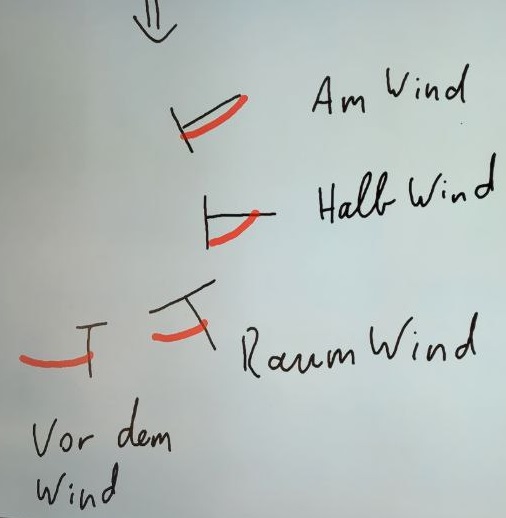 Am Wind
Halb Wind
Raum Wind
Vor dem
Wind